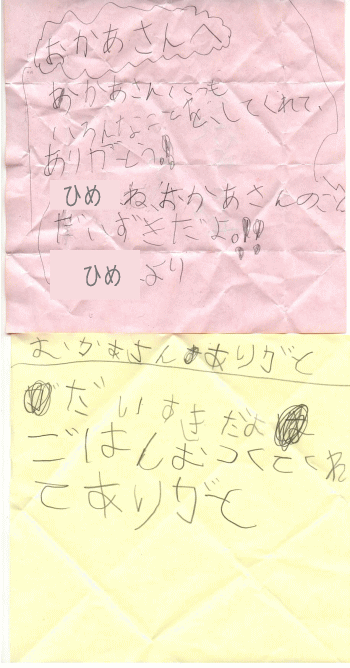 おかあさんへ
おかあさんいつも
いろんなことを、してくれて、
ありがとう!!
ひめ ね、おかあさんのこと
だいずきだよ。!!
ひめ より
おかあさんありがと
だいすきだよ
ごはんおつくてくれ
てありがと